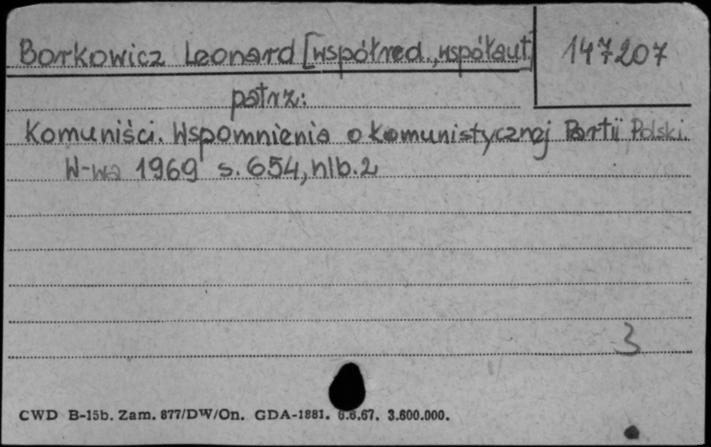 Borkowicz Leonard [współred., współaut.
147207
patrz:
Komuniści. Wspomnienia o Komunistycznej Partii Polski.
W-wa 1969 s. 654, nlb. 2
3
CWD B-15b. Zam. 877/DW/On. GDA-1881. 6.6.67. 3.600.000.